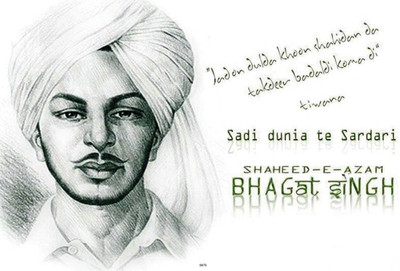 "Jadon dulda khoon shahidan da
takdeer badaldi koma di"
tiwana
Sadi dunia te Sardari
SHAHEED-E-AZAM
BHAGat siNGH